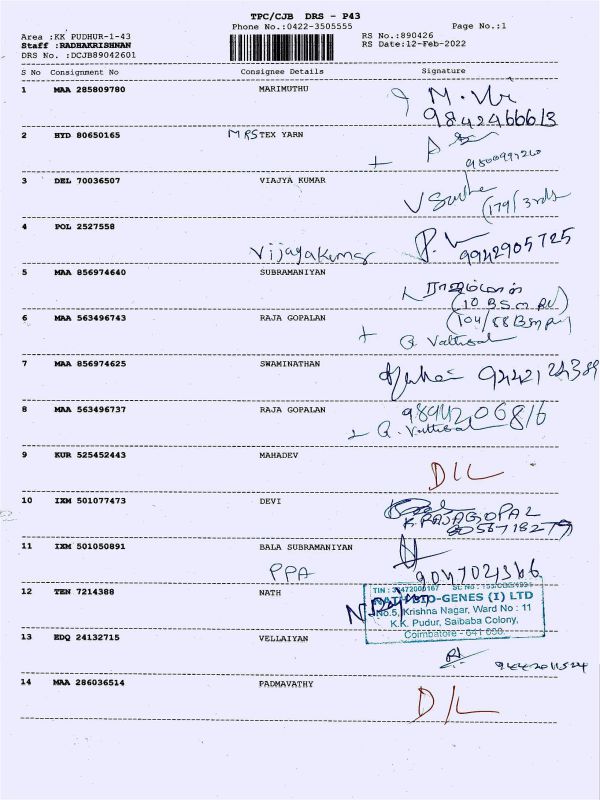 TPC/CJB DRS - P43
Phone No.:0422-3505555 Page No.:1
Area :KK PUDHUR-1-43 RS No.:890426
Staff :RADHAKRISHNAN RS Date:12-Feb-2022
DRS No. :DCJB89042601
S No Consignment No Consignee Details Signature
1 MAA 285809780 MARIMUTHU
9842466613
2 HYD 80650165 MRS TEX YARN
3 DEL 70036507 VIAJYA KUMAR
4 POL 2527558
Vijayakumar 9942905725
5 MAA 856974640 SUBRAMANIYAN
6 MAA 563496743 RAJA GOPALAN
7 MAA 856974625 SWAMINATHAN
8 MAA 563496737 RAJA GOPALAN 9894206816
9 KUR 525452443 MAHADEV
D/L
10 IXM 501077473 DEVI
K.RAJAGOPAL
11 IXM 501050891 BALA SUBRAMANIYAN
PPA
12 TEN 7214388 NATH
BIO-GENES (I) LTD
No.5, Krishna Nagar, Ward No : 11
K.K. Pudur, Saibaba Colony,
Coimbatore -
13 EDQ 24132715 VELLAIYAN
14 MAA 286036514 PADMAVATHY
D/L